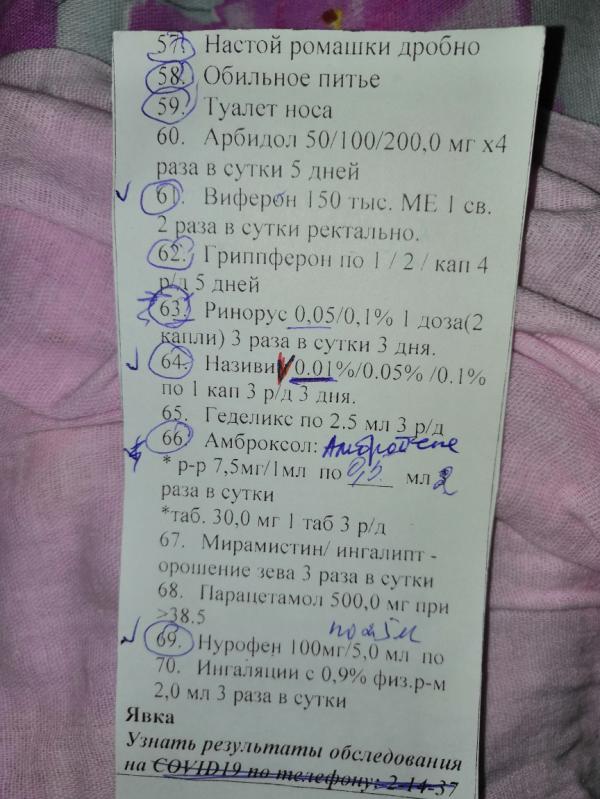 57. Настой ромашки дробно
58. Обильное питье
59. Туалет носа
60. Арбидол 50/100/200,0 мг х4
раза в сутки 5 дней
61. Виферон 150 тыс. МЕ 1 св.
2 раза в сутки ректально.
62. Гриппферон по 1 / 2 / кап 4
р/д 5 дней
63. Ринорус 0,05/0,1% 1 доза(2
капли) 3 раза в сутки 3 дня.
64. Називи 0.01%/0.05% /0.1%
по 1 кап 3 р/д 3 дня.
65. Геделикс по 2.5 мл 3 р/д
66. Амброксол:
* р-р 7,5мг/1мл по мл 2
раза в сутки
*таб. 30,0 мг 1 таб 3 р/д
67. Мирамистин/ ингалипт -
орошение зева 3 раза в сутки
68. Парацетамол 500,0 мг при
>38.5
69. Нурофен 100мг/5,0 мл по
70. Ингаляции с 0,9% физ.р-м
2,0 мл 3 раза в сутки
Явка
Узнать результаты обследования
на COVID19 по телефону: 2-14-37